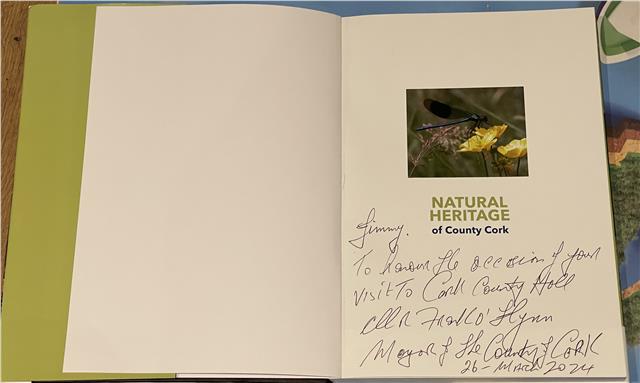 NATURAL
HERITAGE
of County Cork
Jimmy.
To honour the occasion of your
visit To Cork County Hall
Cllr Frank O'Flynn
Mayor of the County of CORK
26-MARCH 2024